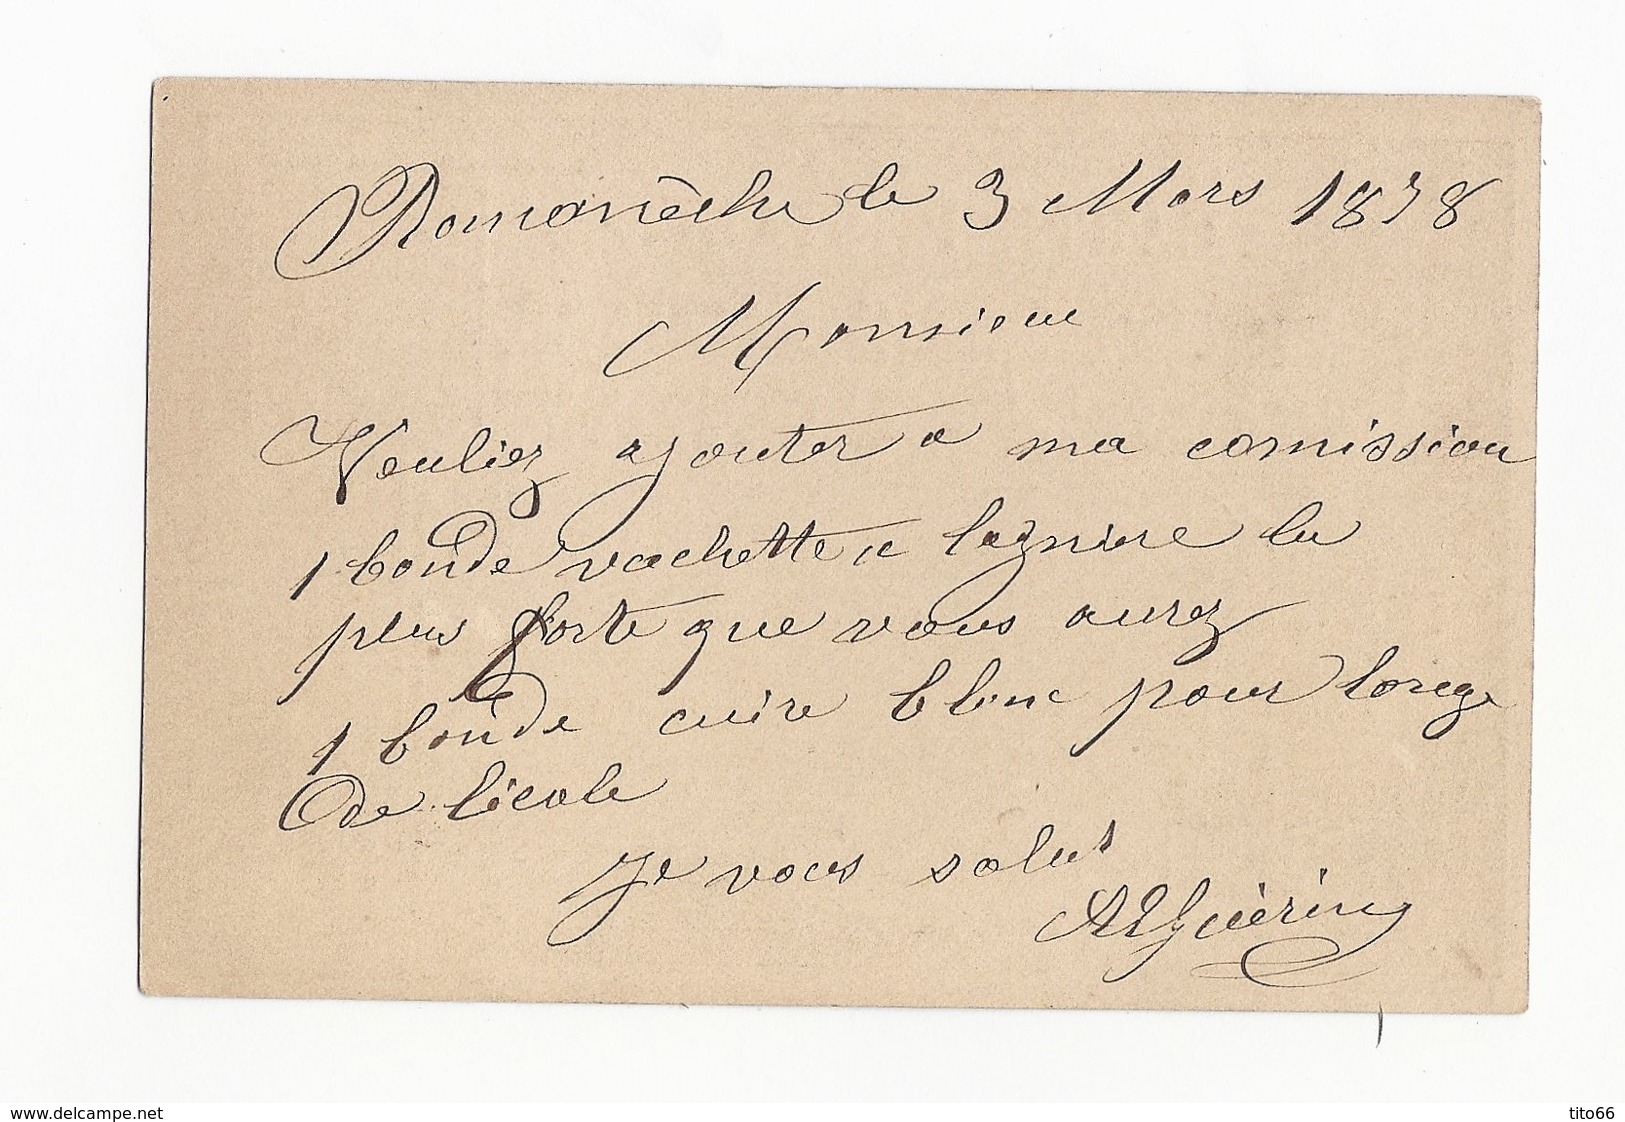 Romanèche le 3 Mars 1878
Monsieur
Veuliez ajouter a ma comission
1 bande vachette a la
plus forte que vous aurez
1 bande cuire blanc pour
de lécole
Je vous salut
Guérin
www.delcampe.net
tito66